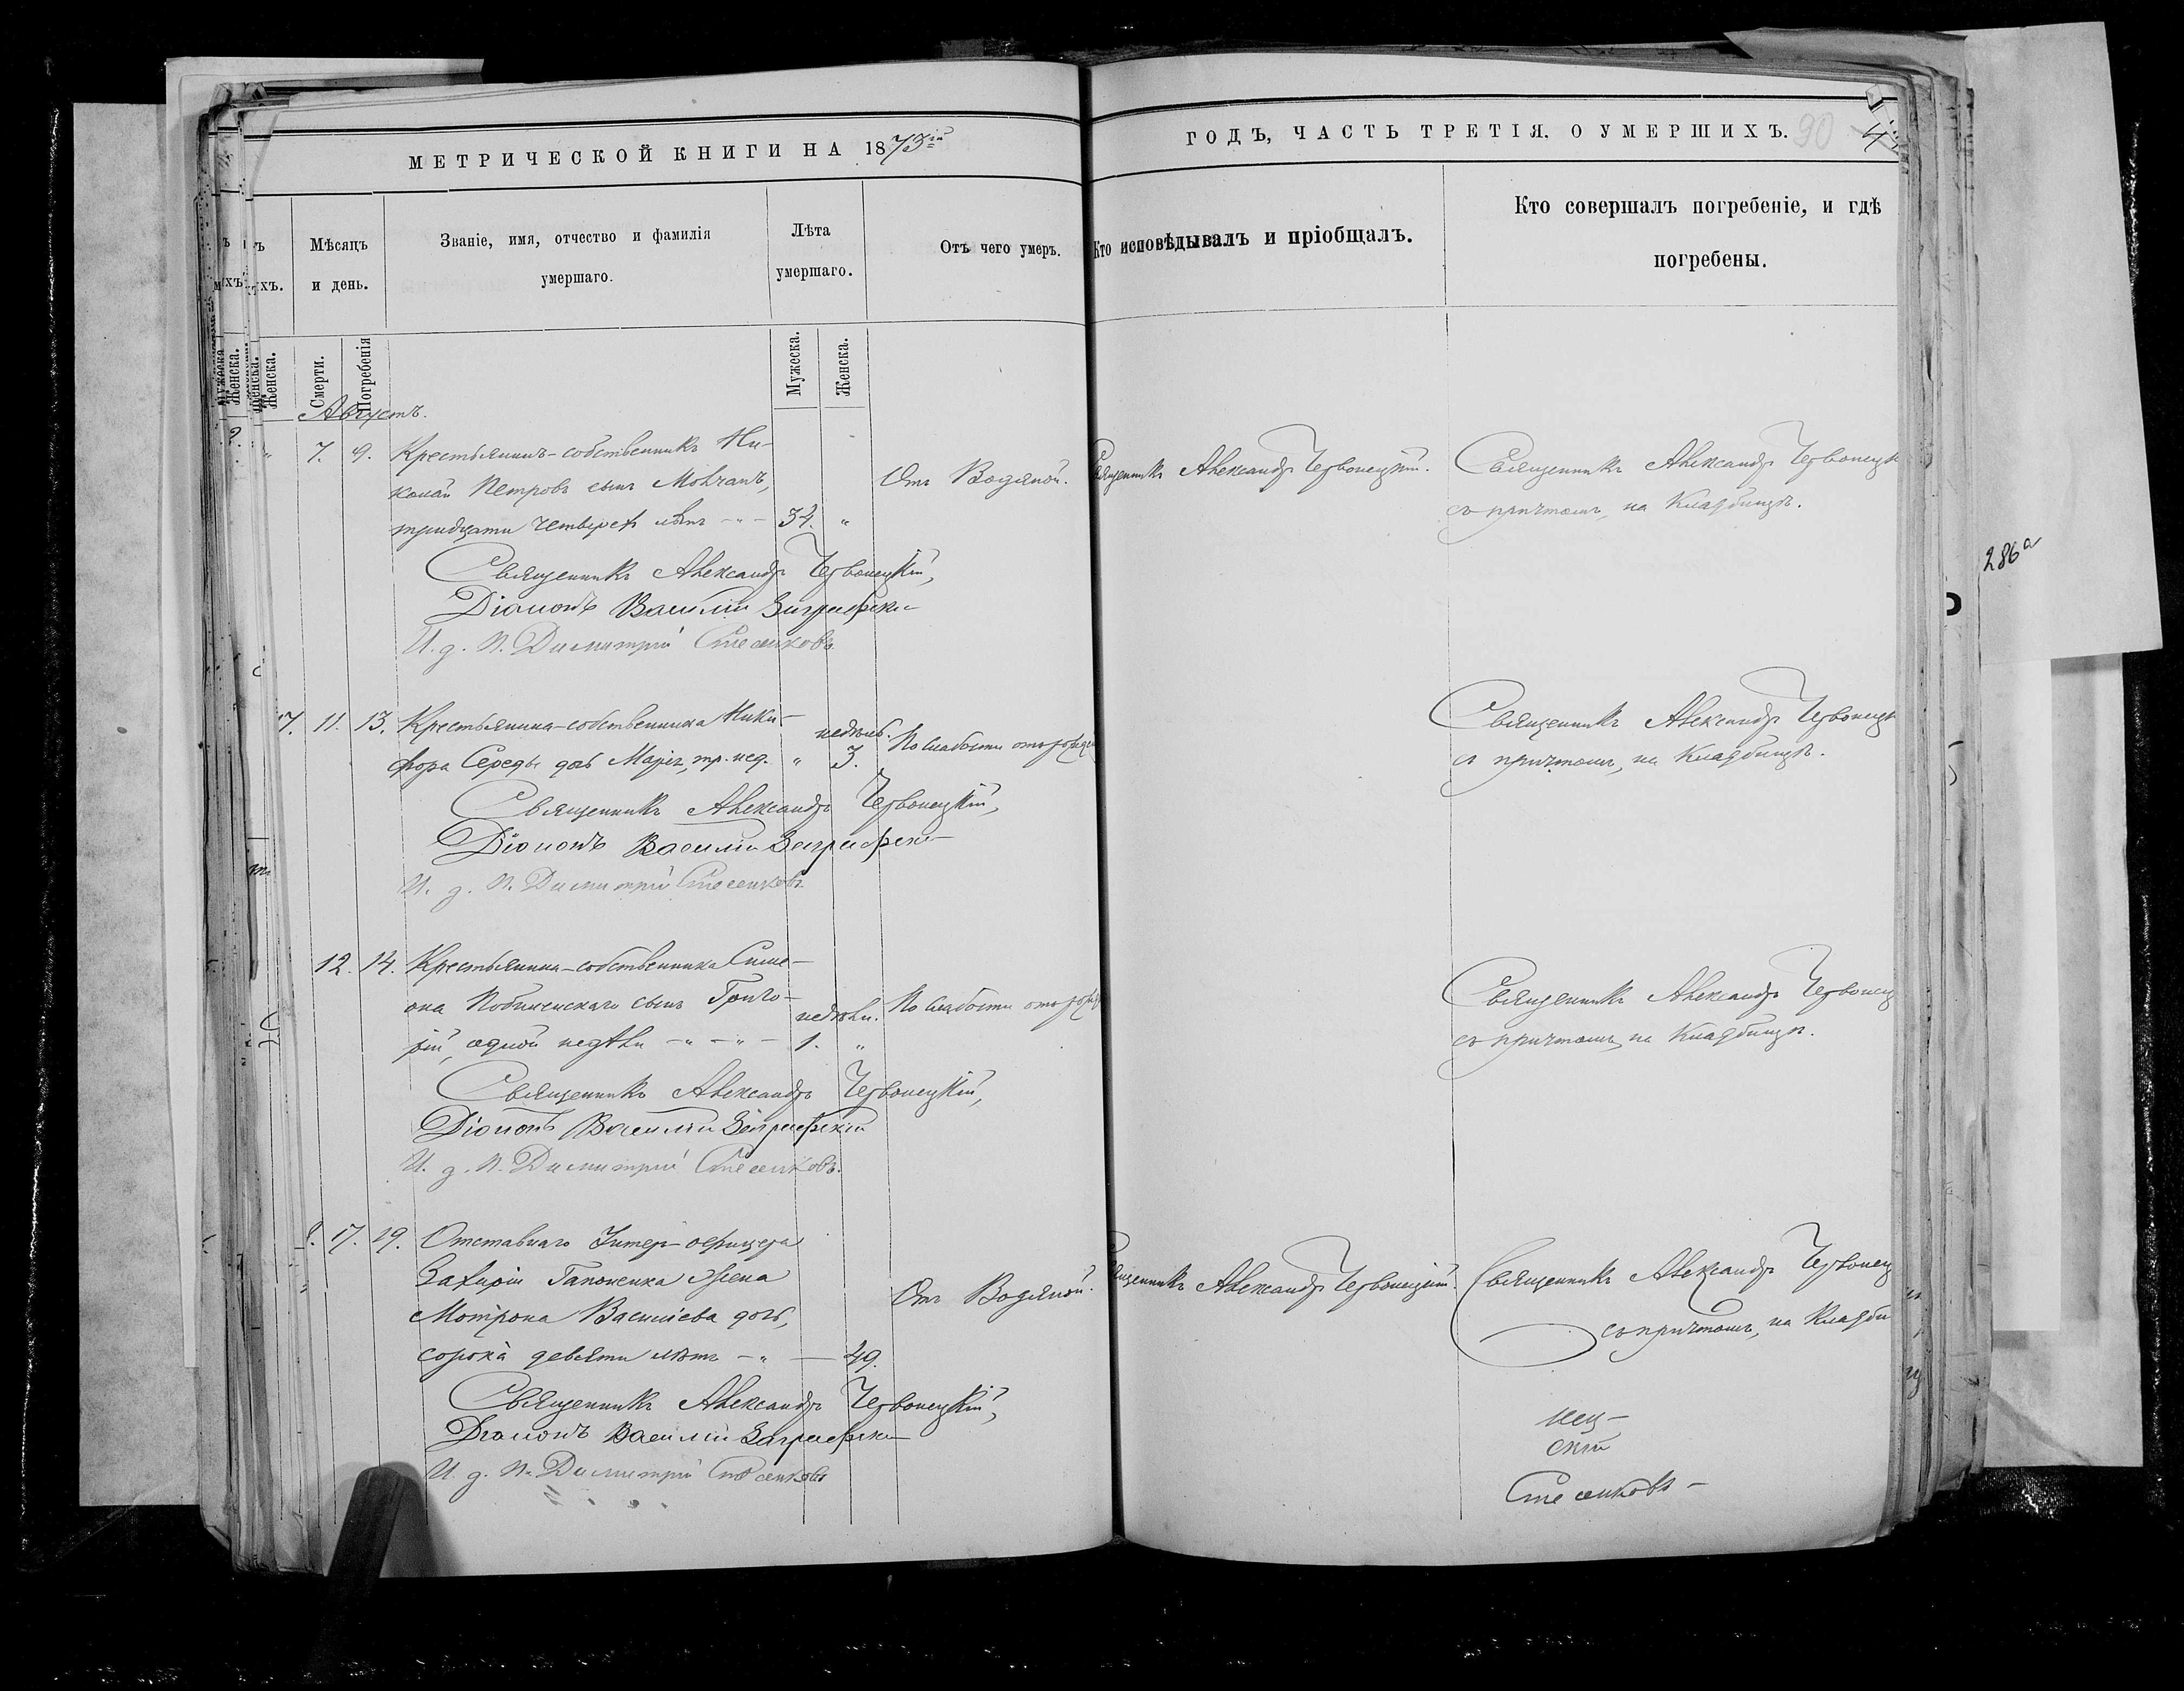 МЕТРИЧЕСКОЙ КНИГИ НА 1873й
Мѣсяцъ и день.
Званіе, имя, отчество и фамилія умершаго.
Лѣта умершаго.
Отъ чего умеръ.
Женска.
Смерти.
Погребенія
Мужеска.
Женска.
Августъ.
7. 9. Крестьянинъ-собственникъ Ни-
колай Петровъ сынъ Мовчанъ,
тридцати четырехъ лѣтъ - " - 34. "
Отъ Водяной.
Священникъ Александръ Червонецкій,
Діаконъ Василій
И. д. п. Димитрій Стесенковъ
7. 11. 13. Крестьянина-собственника Ники-
фора Середы дочь Марія, тр. нед. " недѣль. 3.
По слабости отъ рожден
Священникъ Александръ Червонецкій,
Діаконъ Василій
И. д. п. Димитрій Стесенковъ
12. 14. Крестьянина-собственника Симе-
она сынъ Григо-
рій, одной недѣли - " - " - недѣли. 1. "
По слабости отъ рожд
Священникъ Александръ Червонецкій,
Діаконъ Василій
И. д. п. Димитрій Стесенковъ.
8. 17. 19. Отставнаго Унтер-офицера
Захарія Гапоненка жена
Мотрона Васильева дочь,
сорока девяти лѣтъ - " - 49.
Отъ Водяной.
Священникъ Александръ Червонецкій,
Діаконъ Василій
И. д. п. Димитрій Стесенковъ
ГОДЪ, ЧАСТЬ ТРЕТІЯ. О УМЕРШИХЪ. 90
Кто исповѣдывалъ и пріобщалъ.
Кто совершалъ погребеніе, и гдѣ
погребены.
Священникъ Александръ Червонецкій.
Священникъ Александръ Червонецк
съ причтомъ, на Кладбищѣ.
Священникъ Александръ Червонецк
съ причтомъ, на Кладбищѣ.
Священникъ Александръ Червонец
съ причтомъ, на Кладбищѣ.
Священникъ Александръ Червонецкій.
Священникъ Александръ Червонец
съ причтомъ, на Кладби
нец-
скій
Стесенковъ -
286а